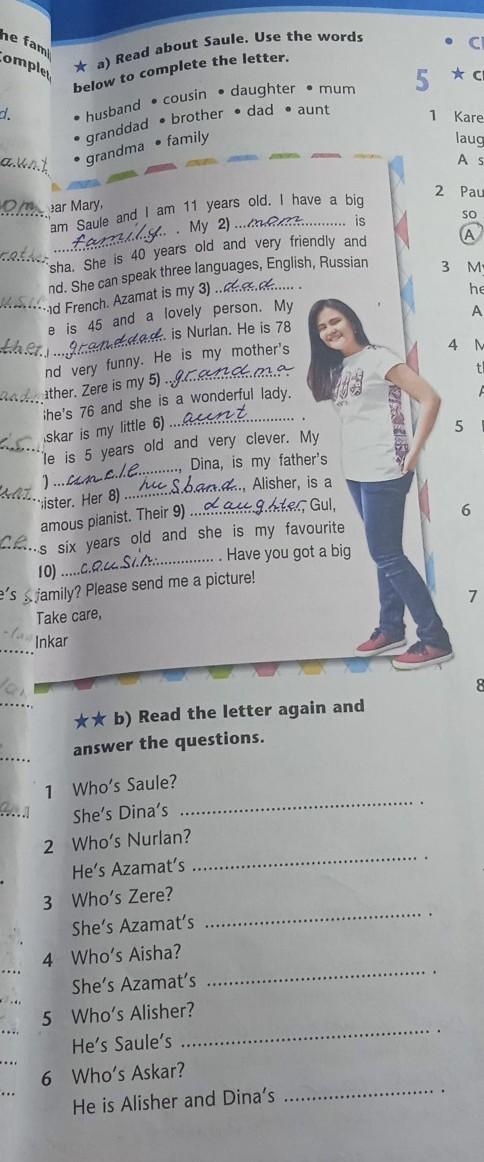 he fami
Complet
★ a) Read about Saule. Use the words
below to complete the letter.
• husband • cousin • daughter • mum
• granddad • brother • dad • aunt
• grandma • family
ear Mary,
am Saule and I am 11 years old. I have a big
family. My 2) mom is
sha. She is 40 years old and very friendly and
nd. She can speak three languages, English, Russian
nd French. Azamat is my 3) dad.
e is 45 and a lovely person. My
granddad is Nurlan. He is 78
nd very funny. He is my mother's
ather. Zere is my 5) grandma
he's 76 and she is a wonderful lady.
skar is my little 6) aunt.
le is 5 years old and very clever. My
) uncle, Dina, is my father's
ister. Her 8) husband, Alisher, is a
amous pianist. Their 9) daughter, Gul,
s six years old and she is my favourite
10) cousin. Have you got a big
family? Please send me a picture!
Take care,
Inkar
★★ b) Read the letter again and
answer the questions.
1 Who's Saule?
She's Dina's .
2 Who's Nurlan?
He's Azamat's .
3 Who's Zere?
She's Azamat's .
4 Who's Aisha?
She's Azamat's .
5 Who's Alisher?
He's Saule's .
6 Who's Askar?
He is Alisher and Dina's .
d.
aunt
's
5 ★
1 Kare
laug
A s
2 Pau
so
A
3 M
he
A
4
t
5
6
7
8